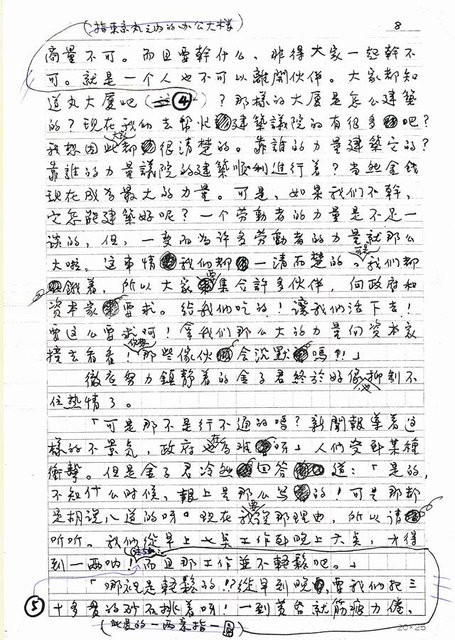 (指東京丸之内的办公大樓)
8
商量不可。而且要幹什么,非得大家一起幹不
可。就是一个人也不可以離開伙伴。大家都知
道丸大厦吧(註④)?那樣的大厦是怎么建築
的?现在我们去帮忙建築議院的有很多吧?
我想因此大家都很清楚的。靠誰的力量建築它的?
靠誰的力量議院的建築順利進行着?当然金錢
现在成為最大的力量。可是,如果我们不幹,
它怎能建築好呢?一个勞動者的力量是不足一
談的,但,一变而為许多勞動者的力量就那么
大啦。这事情我们都一清而楚的。可是我们都
餓着,所以大家要集合許多伙伴,向政府和
资本家要求。给我们吃的!讓我们活下去!
要这么要求呵!拿我们那么大的力量向资本家
撞去看看!那些傢伙会沉默嗎?!」
微在努力鎮静着的金子君终於好像抑制不
住热情了。
「可是那不是行不通的嗎?新聞報集着这
樣的不景氣,政府也在為难呀」人们受到某種
衝擊。但是金子君冷静回答道:「是的,
不知什么时候,報上是那么写的!可是那都
是胡说八道的呀。现在我说那理由,所以请
听听。我们從早上七点工作到晚上六点,才得
到一兩呐!而且那工作並不輕鬆吧。」
「哪裡是輕鬆的!?從早到晚,要我们把三
十多貫的砂石挑着呀!一到黄昏就筋疲力倦,
⑤
(此处的一兩是指一圓)
20×20